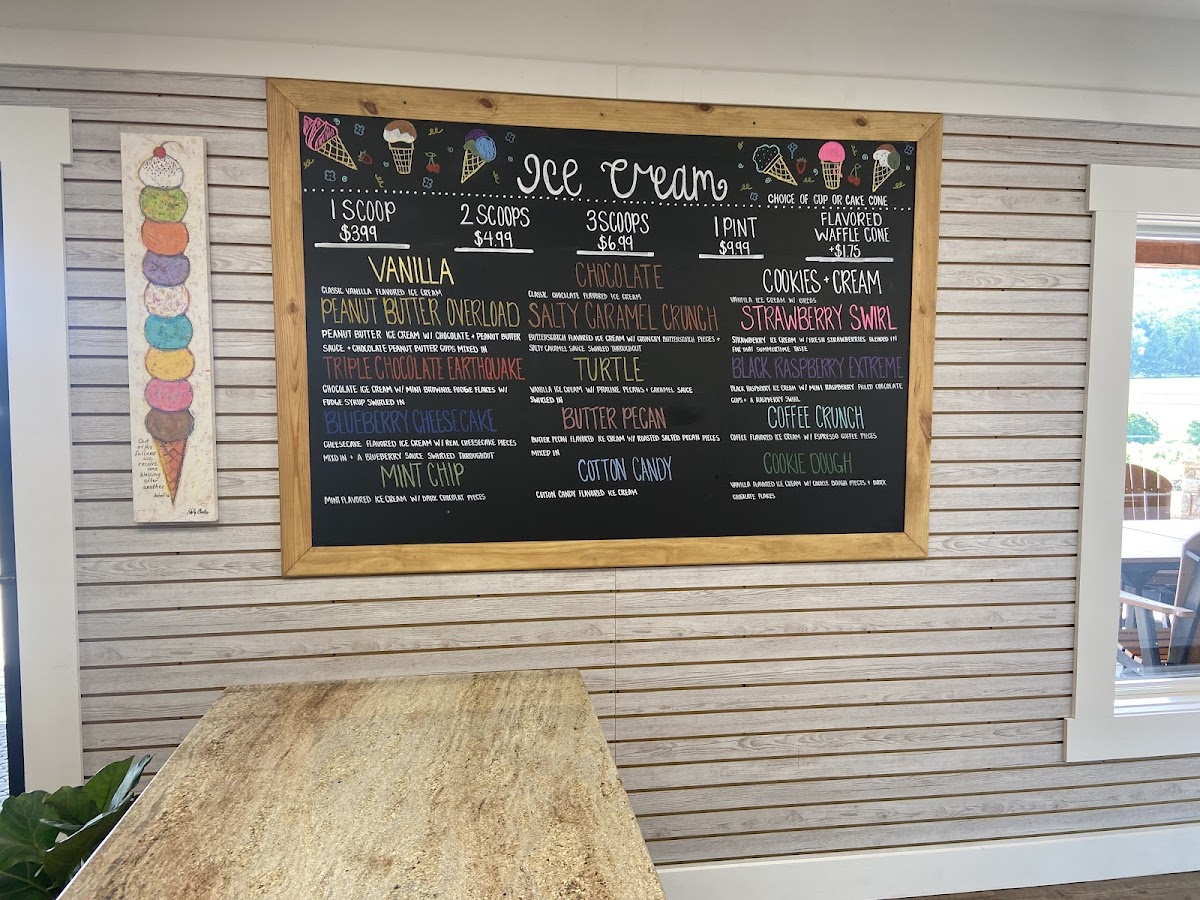 Ice Cream
CHOICE OF CUP OR CAKE CONE
1 SCOOP
$3.99
2 SCOOPS
$4.99
3 SCOOPS
$6.99
1 PINT
$9.99
FLAVORED
WAFFLE CONE
+$1.75
VANILLA
CLASSIC VANILLA FLAVORED ICE CREAM
PEANUT BUTTER OVERLOAD
PEANUT BUTTER ICE CREAM W/ CHOCOLATE + PEANUT BUTTER
SAUCE + CHOCOLATE PEANUT BUTTER CUPS MIXED IN
TRIPLE CHOCOLATE EARTHQUAKE
CHOCOLATE ICE CREAM W/ MINI BROWNIE FUDGE FLAKES W/
FUDGE SYRUP SWIRLED IN
BLUEBERRY CHEESECAKE
CHEESECAKE FLAVORED ICE CREAM W/ REAL CHEESECAKE PIECES
MIXED IN + A BLUEBERRY SAUCE SWIRLED THROUGHOUT
MINT CHIP
MINT FLAVORED ICE CREAM W/ DARK CHOCOLAT PIECES
CHOCOLATE
CLASSIC CHOCOLATE FLAVORED ICE CREAM
SALTY CARAMEL CRUNCH
BUTTERSCOTCH FLAVORED ICE CREAM W/ CRUNCHY BUTTERSCOTCH PIECES +
SALTY CARAMEL SAUCE SWIRLED THROUGHOUT
TURTLE
VANILLA ICE CREAM W/ PRALINE PECANS + CARAMEL SAUCE
SWIRLED IN
BUTTER PECAN
BUTTER PECAN FLAVORED ICE CREAM W/ ROASTED SALTED PECAN PIECES
MIXED IN
COTTON CANDY
COTTON CANDY FLAVORED ICE CREAM
COOKIES + CREAM
VANILLA ICE CREAM W/ OREOS
STRAWBERRY SWIRL
STRAWBERRY ICE CREAM W/ FRESH STRAWBERRIES BLENDED IN
FOR THAT SUMMERTIME TASTE
BLACK RASPBERRY EXTREME
BLACK RASPBERRY ICE CREAM W/ MINI RASPBERRY FILLED CHOCOLATE
CUPS + A RASPBERRY SWIRL
COFFEE CRUNCH
COFFEE FLAVORED ICE CREAM W/ ESPRESSO COFFEE PIECES
COOKIE DOUGH
VANILLA FLAVORED ICE CREAM W/ COOKIE DOUGH PIECES + DARK
CHOCOLATE FLAKES
Out
of his
fullness
we
receive
one
blessing
after
another.